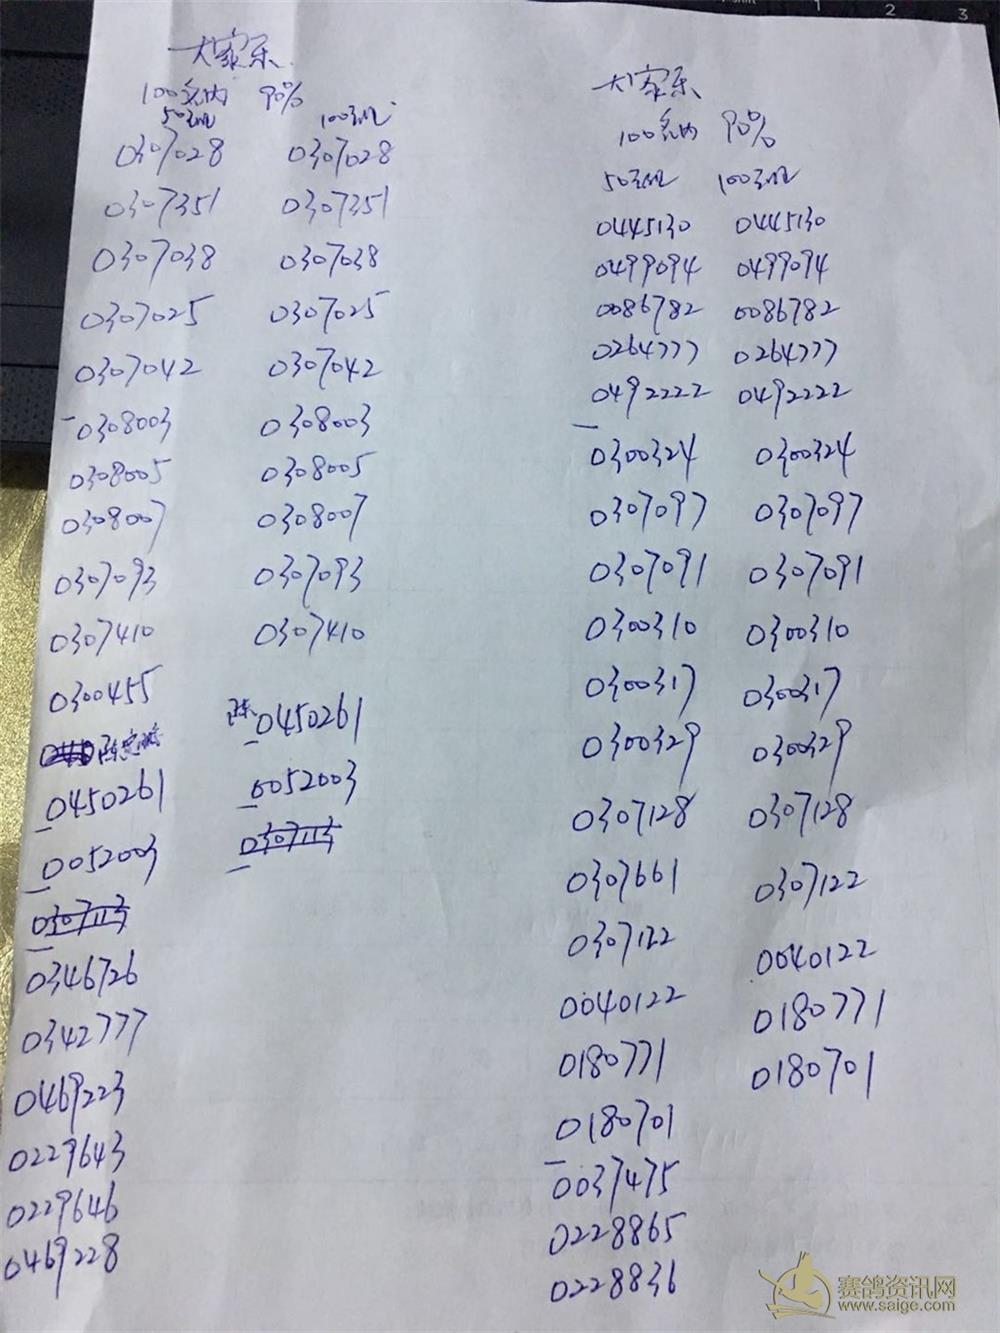 大家乐
100名内 90%
50元组 100元组
0307028 0307028
0307351 0307351
0307038 0307038
0307025 0307025
0307042 0307042
0308003 0308003
0308005 0308005
0308007 0308007
0307093 0307093
0307410 0307410
0300455
陈
陈 0450261
0450261 0052003
0052003 0307113
0307113
0346726
0342777
0469223
0229643
0229646
0469228
大家乐
100名内 90%
50元组 100元组
0445130 0445130
0499094 0499094
0086782 0086782
0264777 0264777
0492222 0492222
0300324 0300324
0307097 0307097
0307091 0307091
0300310 0300310
0300317 0300317
0300329 0300329
0307128 0307128
0307661 0307122
0307122 0040122
0040122 0180771
0180771 0180701
0180701
0037475
0228865
0228836
赛鸽资讯网
www.saige.com
1 2 3